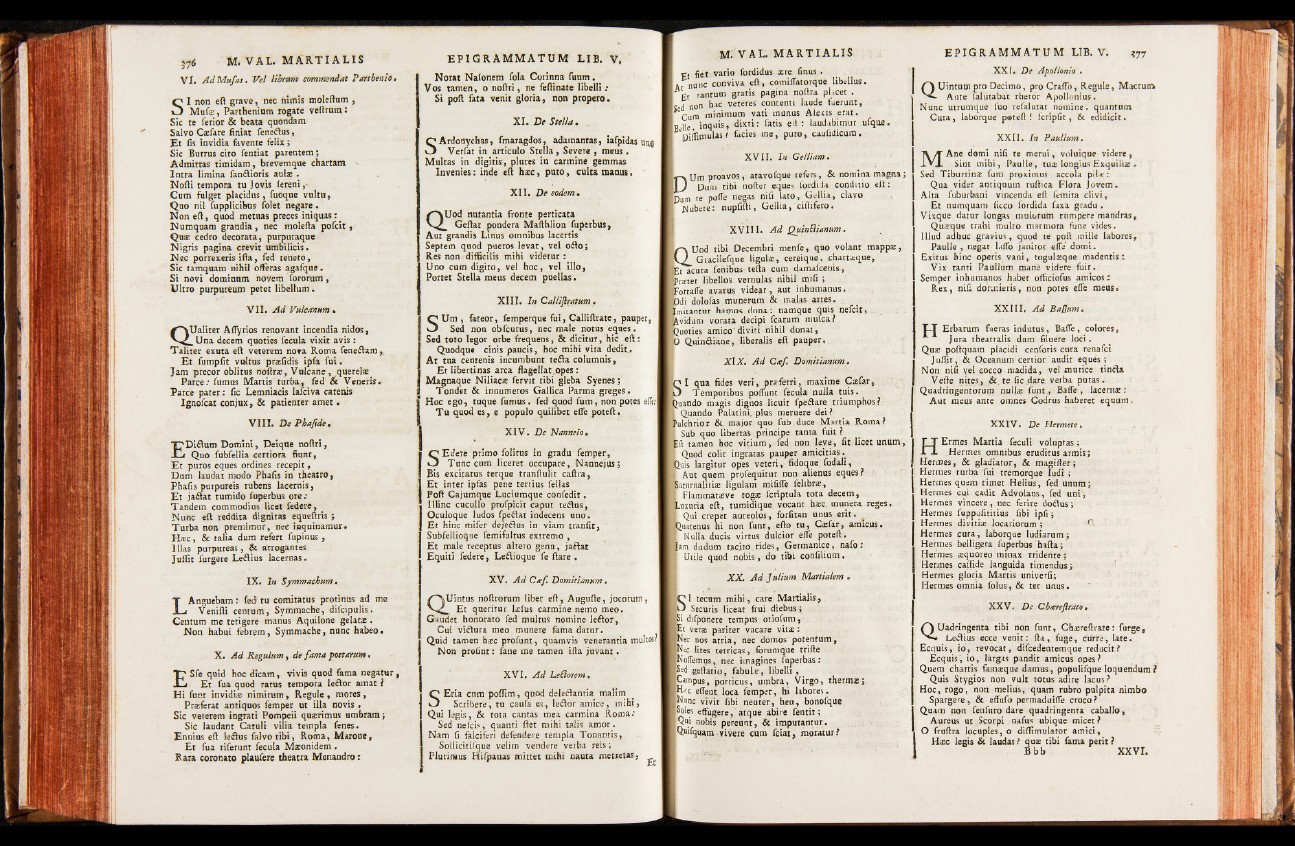 376 M. VAL. MARTIALIS
VI. Ad Musas. Vel librum commendat Parthenio.
SI non eſt grave, nec nimis moleſtum,
Muſæ, Parthenium rogate veſtrum:
Sic te ſerior & beata quondam
Salvo Cæſare finiat ſenectus,
Et ſis invidia favente felix;
Sic Burrus cito ſentiat parentem;
Admittas timidam, brevemque chartam
Intra limina ſanctioris aulæ.
Noſti tempora tu Jovis ſereni,
Cum fulget placidus, ſuoque vultu,
Quo nil ſupplicibus ſolet negare.
Non eſt, quod metuas preces iniquas:
Numquam grandia, nec moleſta poſcit,
Quæ cedro decorata, purpuraque
Nigris pagina crevit umbilicis.
Nec porrexeris iſta, ſed teneto,
Sic tamquam nihil offeras agaſque.
Si novi dominum novem ſororum,
Ultro purpureum petet libellum.
VII. Ad Vulcanum.
QUaliter Aſſyrios renovant incendia nidos,
Una decem quoties ſecula vixit avis:
Taliter exuta eſt veterem nova Roma ſenectam,
Et ſumpſit vultus præſidis ipſa ſui.
Jam precor oblitus noſtræ, Vulcane, querelæ
Parce: ſumus Martis turba, ſed & Veneris.
Parce pater: ſic Lemniacis laſciva catenis
Ignoſcat conjux, & patienter amet.
VIII. De Phaſide.
EDictum Domini, Deique noſtri,
Quo ſubſellia certiora fiunt,
Et puros eques ordines recepit,
Dum laudat modo Phaſis in theatro,
Phaſis purpureis rubens lacernis,
Et jactat tumido ſuperbus ore:
Tandem commodius licet ſedere,
Nunc eſt reddita dignitas equeſtris;
Turba non premimur, nec inquinamur.
Hæc, & talia dum refert ſupinus,
Illas purpureas, & arrogantes
Juſſit ſurgere Lectius lacernas.
IX. In Symmachum.
LAnguebam: ſed tu comitatus protinus ad me
Veniſti centum, Symmache, diſcipulis.
Centum me tetigere manus Aquilone gelatæ.
Non habui febrem, Symmache, nunc habeo.
X. Ad Regulum, de fama poetarum.
ESſe quid hoc dicam, vivis quod fama negatur,
Et ſua quod rarus tempora lector amat?
Hi ſunt invidiæ nimirum, Regule, mores,
Præferat antiquos ſemper ut illa novis.
Sic veterem ingrati Pompeii quærimus umbram;
Sic laudant Catuli vilia templa ſenes.
Ennius eſt lectus ſalvo tibi, Roma, Marone,
Et ſua riſerunt ſecula Mæonidem.
Rara coronato plauſere theatra Menandro:
EPIGRAMMATUM LIB. V.
Norat Naſonem ſola Corinna ſuum.
Vos tamen, o noſtri, ne feſtinate libelli:
Si poſt fata venit gloria, non propero.
XI. De Stella.
SArdonychas, ſmaragdos, adamantas, iaſpidas uno
Verſat in articulo Stella, Severe, meus.
Multas in digitis, plures in carmine gemmas
Invenies: inde eſt hæc, puto, culta manus.
XII. De eodem.
QUod nutantia fronte perticata
Geſtat pondera Maſthlion ſuperbus,
Aut grandis Linus omnibus lacertis
Septem quod pueros levat, vel octo;
Res non difficilis mihi videtur:
Uno cum digito, vel hoc, vel illo,
Portet Stella meus decem puellas.
XIII. In Calliſtratum.
SUm, fateor, ſemperque fui, Calliſtrate, pauper,
Sed non obſcurus, nec male notus eques.
Sed toto legor orbe frequens, & dicitur, hic eſt:
Quodque cinis paucis, hoc mihi vita dedit.
At tua centenis incumbunt tecta columnis,
Et libertinas arca flagellat opes:
Magnaque Niliacæ ſervit tibi gleba Syenes;
Tondet & innumeros Gallica Parma greges.
Hoc ego, tuque ſumus. ſed quod ſum, non potes eſſe:
Tu quod es, e populo quilibet eſſe poteſt.
XIV. De Nanneio.
SEdere primo ſolitus in gradu ſemper,
Tunc cum liceret occupare, Nannejus;
Bis excitatus terque tranſtulit caſtra,
Et inter ipſas pene tertius ſellas
Poſt Cajumque Luciumque conſedit,
Illinc cucullo proſpicit caput tectus,
Oculoque ludos ſpectat indecens uno.
Et hinc miſer dejectus in viam tranſit,
Subſellioque ſemifultus extremo,
Et male receptus altero genu, jactat
Equiti ſedere, Lectioque ſe ſtare.
XV. Ad Cæſ. Domitianum.
QUintus noſtrorum liber eſt, Auguſte, jocorum,
Et queritur læſus carmine nemo meo.
Gaudet honorato ſed multus nomine lector,
Cui victura meo munere fama datur.
Quid tamen hæc proſunt, quamvis venerantia multos?
Non proſint: ſane me tamen iſta juvant.
XVI. Ad Lectorem.
SEria cum poſſim, quod delectantia malim
Scribere, tu cauſa es, lector amice, mihi,
Qui legis, & tota cantas mea carmina Roma:
Sed neſcis, quanti ſtet mihi talis amor.
Nam ſi falciferi defendere templa Tonantis,
Sollicitiſque velim vendere verba reis;
Plurimus Hiſpanas mittet mihi nauta metretas,
Et
M. VAL. MARTIALIS
Et fiet vario ſordidus ære ſinus.
At nunc conviva eſt, comiſſatorque libellus.
Et tantum gratis pagina noſtra placet.
Sed non hac veteres contenti laude fuerunt,
Cum minimum vati munus Alexis erat.
Belle, inquis, dixti: ſatis eſt: laudabimur uſque.
Diſſimulas? facies me, puto, cauſidicum.
XVII. In Gelliam.
DUm proavos, atavoſque refers, & nomina magna;
Dum tibi noſter eques ſordida conditio eſt:
Dum te poſſe negas niſi lato, Gellia, clavo
Nubere: nupſiſti, Gellia, ciſtifero.
XVIII. Ad Quinctianum.
QUod tibi Decembri menſe, quo volant mappæ,
Gracileſque ligulæ, cereique, chartæque,
Et acuta ſenibus teſta cum damaſcenis,
Præter libellos vernulas nihil miſi;
Fortaſſe avarus videar, aut inhumanus.
Odi doloſas munerum & malas artes.
Imitantur hamos dona: namque quis neſcit,
Avidum vorata decipi ſcarum muſca?
Quoties amico diviti nihil donat,
O Quinctiane, liberalis eſt pauper.
XIX. Ad Cæſ. Domitianum.
SI qua fides veri, præferri, maxime Cæſar,
Temporibus poſſunt ſecula nulla tuis.
Quando magis dignos licuit ſpectare triumphos?
Quando Palatini plus meruere dei?
Pulchrior & major quo ſub duce Martia Roma?
Sub quo libertas principe tanta fuit?
Eſt tamen hoc vitium, ſed non leve, ſit licet unum,
Quod colit ingratas pauper amicitias.
Quis largitur opes veteri, fidoque ſodali,
Aut quem proſequitur non alienus eques?
Saturnalitiæ ligulam miſiſſe ſelibræ,
Flammatæve togæ ſcriptula tota decem,
Luxuria eſt, tumidique vocant hæc munera reges.
Qui crepet aureolos, forſitan unus erit.
Quatenus hi non ſunt, eſto tu, Cæſar, amicus.
Nulla ducis virtus dulcior eſſe poteſt.
Jam dudum tacito rides, Germanice, naſo:
Utile quod nobis, do tibi conſilium.
XX. Ad Julium Martialem.
SI tecum mihi, care Martialis,
Securis liceat frui diebus;
Si diſponere tempus otioſum,
Et veræ pariter vacare vitæ:
Nec nos atria, nec domos potentum,
Nec lites tetricas, forumque triſte
Noſſemus, nec imagines ſuperbas:
Sed geſtatio, fabulæ, libelli,
Campus, porticus, umbra, Virgo, thermæ;
Hæc eſſent loca ſemper, hi labores.
Nunc vivit ſibi neuter, heu, bonoſque
Soles effugere, atque abire ſentit;
Qui nobis pereunt, & imputantur.
Quiſquam vivere cum ſciat, moratur?
EPIGRAMMATUM LIB. V. 377
XXI. De Apollonio.
QUintum pro Decimo, pro Craſſo, Regule, Macrum
Ante ſalutabat rhetor Apollonius.
Nunc utrumque ſuo reſalutat nomine. quantum
Cura, laborque poteſt! ſcripſit, & edidicit.
XXII. In Paullum.
MAne domi niſi te merui, voluique videre,
Sint mihi, Paulle, tuæ longius Exquiliæ.
Sed Tiburtinæ ſum proximus accola pilæ:
Qua videt antiquum ruſtica Flora Jovem.
Alta ſuburbani vincenda eſt ſemita clivi,
Et numquam ſicco ſordida ſaxa gradu.
Vixque datur longas mulorum rumpere mandras,
Quæque trahi multo marmora fune vides.
Illud adhuc gravius, quod te poſt mille labores,
Paulle, negat laſſo janitor eſſe domi.
Exitus hinc operis vani, togulæque madentis:
Vix tanti Paullum mane videre fuit.
Semper inhumanos habet officioſus amicos:
Rex, niſi dormieris, non potes eſſe meus.
XXIII. Ad Baſſum.
HErbarum fueras indutus, Baſſe, colores,
Jura theatralis dum ſiluere loci.
Quæ poſtquam placidi cenſoris cura renaſci
Juſſit, & Oceanum certior audit eques;
Non niſi vel cocco madida, vel murice tincta
Veſte nites, & te ſic dare verba putas.
Quadringentorum nullæ ſunt, Baſſe, lacernæ:
Aut meus ante omnes Codrus haberet equum.
XXIV. De Hermete.
HErmes Martia ſeculi voluptas;
Hermes omnibus eruditus armis;
Hermes, & gladiator, & magiſter;
Hermes turba ſui tremorque ludi;
Hermes quem timet Helius, ſed unum;
Hermes cui cadit Advolans, ſed uni,
Hermes vincere, nec ferire doctus;
Hermes ſuppoſititius ſibi ipſi;
Hermes divitiæ locariorum;
Hermes cura, laborque ludiarum;
Hermes belligera ſuperbus haſta;
Hermes æquoreo minax tridente;
Hermes caſſide languida timendus;
Hermes gloria Martis univerſi;
Hermes omnia ſolus, & ter unus.
XXV. De Chæreſtrato.
QUadringenta tibi non ſunt, Chæreſtrate: ſurge,
Lectius ecce venit: ſta, fuge, curre, late.
Ecquis, io, revocat, diſcedentemque reducit?
Ecquis, io, largas pandit amicus opes?
Quem chartis famæque damus, populiſque loquendum?
Quis Stygios non vult totus adire lacus?
Hoc, rogo, non melius, quam rubro pulpita nimbo
Spargere, & effuſo permaduiſſe croco?
Quam non ſenſuro dare quadringenta caballo,
Aureus ut Scorpi naſus ubique micet?
O fruſtra locuples, o diſſimulator amici,
Hæc legis & laudas? quæ tibi fama perit?
Bbb XXVI.